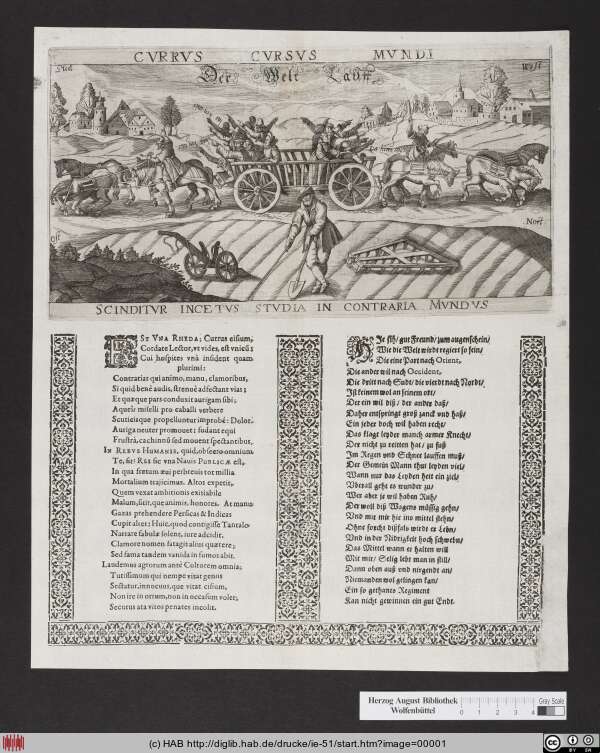 CVRRVS CVRSVS MVNDI
Der Welt Lauff
Sud
West
Ost
Nort
SCINDITVR INCETVS STVDIA IN CONTRARIA MVNDVS
EST VNA RHEDA; Currus eisum,
Cordate Lector, ut vides, est vnicus
Cui hospites vnà insident quam
plurimi:
Contrarias qui animo, manu, clamoribus,
Si quid bene audis, strenuè adfectant vias;
Et quæque pars conduxit aurigam sibi;
Aquels miselli pro caballi verbere
Scuticisque propelluntur improbè: Dolor:
Auriga neuter promouet: sudant equi
Frustrà, cachinnū sed mouent spectantibus,
IN REBVS HVMANIS, quid, obsecro omnium
Te, si: RES sic vna Nauis PVBLICÆ est,
In qua fretum æui persteuis tot millia
Mortalium trajicimus. Altos expetit,
Quem vexat ambitionis exitiabile
Malum, sitit, que animis, honores. At manu
Gazas prehendere Persicas & Indicas
Cupit alter: Huic, quod contigisse Tantalo
Narrare fabulæ solent, iure accidit.
Clamore nomen satagit alius quærere;
Sed fama tandem vanida in fumos abit.
Laudemus agrorum antè Cultorem omnia;
Tutissimum qui nempe vitæ genus
Sectatur, innocuus, que vitat eisium,
Non ire in ortum, non in occasum volet;
Securus ata vitos penates incolit.
HIe sih/ gut Freund/ zum augenschein/
Wie die Welt wirdt regiert so fein/
Die eine Part nach Orient,
Die ander wil nach Occident,
Die dritt nach Sudt/ die vierdt nach Nordt/
Ist keinem wol an seinem ort/
Der ein wil diß/ der ander daß/
Daher entspringt groß zanck vnd haß/
Ein jeder doch wil haben recht/
Das klagt leyder manch armer Knecht/
Der nicht zu reitten hat/ zu fuß
Im Regen vnd Schnee lauffen muß/
Der Gemein Mann thut leyden viel/
Wann nur das Leyden hett ein ziel/
Vberall geht es wunder zu/
Wer aber je wil haben Ruh/
Der woll diß Wagens müssig gehn/
Vnd mit mir hie ins mittel stehn/
Ohne sorcht dißfals wirdt er Lebn/
Vnd in der Nidrigkeit hoch schwebn/
Das Mittel wann er halten will
Mit mir/ Selig lebt man in still/
Dann oben auß vnd nirgendt an/
Niemanden wol gelingen kan/
Ein so gethanes Regiment
Kan nicht gewinnen ein gut Endt.
Herzog August Bibliothek
Wolfenbüttel
0 1 2 3 4
Gray Scale
(c) HAB http://diglib.hab.de/drucke/ie-51/start.htm?image=00001
cc BY SA